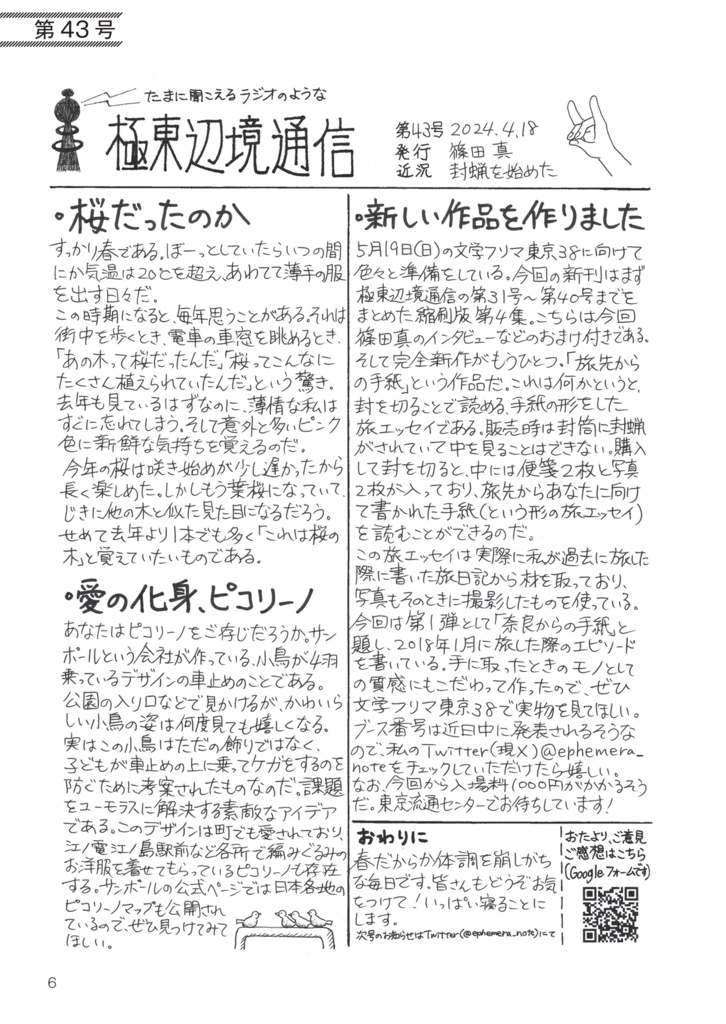 第43号
たまに聞こえるラジオのような
極東辺境通信
第43号 2024.4.18
発行 篠田 真
近況 封蝋を始めた
・桜だったのか
すっかり春である。ぼーっとしていたらいつの間
にか気温は20℃を超え、あわてて薄手の服
を出す日々だ。
この時期になると、毎年思うことがある。それは
街中を歩くとき、電車の車窓を眺めるとき、
「あの木って桜だったんだ」「桜ってこんなに
たくさん植えられていたんだ」という驚き。
去年も見ているはずなのに、薄情な私は
すぐに忘れてしまう。そして意外と多いピンク
色に新鮮な気持ちを覚えるのだ。
今年の桜は咲き始めが少し遅かったから
長く楽しめた。しかしもう葉桜になっていて、
じきに他の木と似た見た目になるだろう。
せめて去年より1本でも多く「これは桜の
木」と覚えていたいものである。
・愛の化身、ピコリーノ
あなたはピコリーノをご存じだろうか。サン
ポールという会社が作っている、小鳥が4羽
乗っているデザインの車止めのことである。
公園の入り口などで見かけるが、かわいら
しい小鳥の姿は何度見ても嬉しくなる。
実はこの小鳥はただの飾りではなく、
子どもが車止めの上に乗ってケガをするのを
防ぐために考案されたものなのだ。課題
をユーモラスに解決する素敵なアイデア
である。このデザインは町でも愛されており、
江ノ電江ノ島駅前など各所で編みぐるみの
お洋服を着せてもらっているピコリーノも存在
する。サンポールの公式ページでは日本各地の
ピコリーノマップも公開され
ているので、ぜひ見つけてみて
ほしい。
・新しい作品を作りました
5月19日(日)の文学フリマ東京38に向けて
色々と準備をしている。今回の新刊はまず
極東辺境通信の第31号〜第40号までを
まとめた縮刷版第4集。こちらは今回
篠田真のインタビューなどのおまけ付きである。
そして完全新作がもうひとつ。「旅先から
の手紙」という作品だ。これは何かというと、
封を切ることで読める、手紙の形をした
旅エッセイである。販売時は封筒に封蝋
がされていて中を見ることはできない。購入
して封を切ると、中には便箋2枚と写真
2枚が入っており、旅先からあなたに向け
て書かれた手紙(という形の旅エッセイ)
を読むことができるのだ。
この旅エッセイは実際に私が過去に旅した
際に書いた旅日記から材を取っており、
写真もそのときに撮影したものを使っている。
今回は第1弾として「奈良からの手紙」と
題し、2018年1月に旅した際のエピソード
を書いている。手に取ったときのモノとして
の質感にもこだわって作ったので、ぜひ
文学フリマ東京38で実物を見てほしい。
ブース番号は近日中に発表されるそうな
ので、私のTwitter(現X)@ephemera_
noteをチェックしていただけたら嬉しい。
なお、今回から入場料1000円がかかるそう
だ。東京流通センターでお待ちしています!
おわりに
春だからか体調を崩しがち
な毎日です。皆さんもどうぞお気
をつけて!いっぱい寝ることに
します。
次号のお知らせはTwitter(@ephemera_note)にて
おたより、ご意見
ご感想はこちら
(Googleフォームです)
6